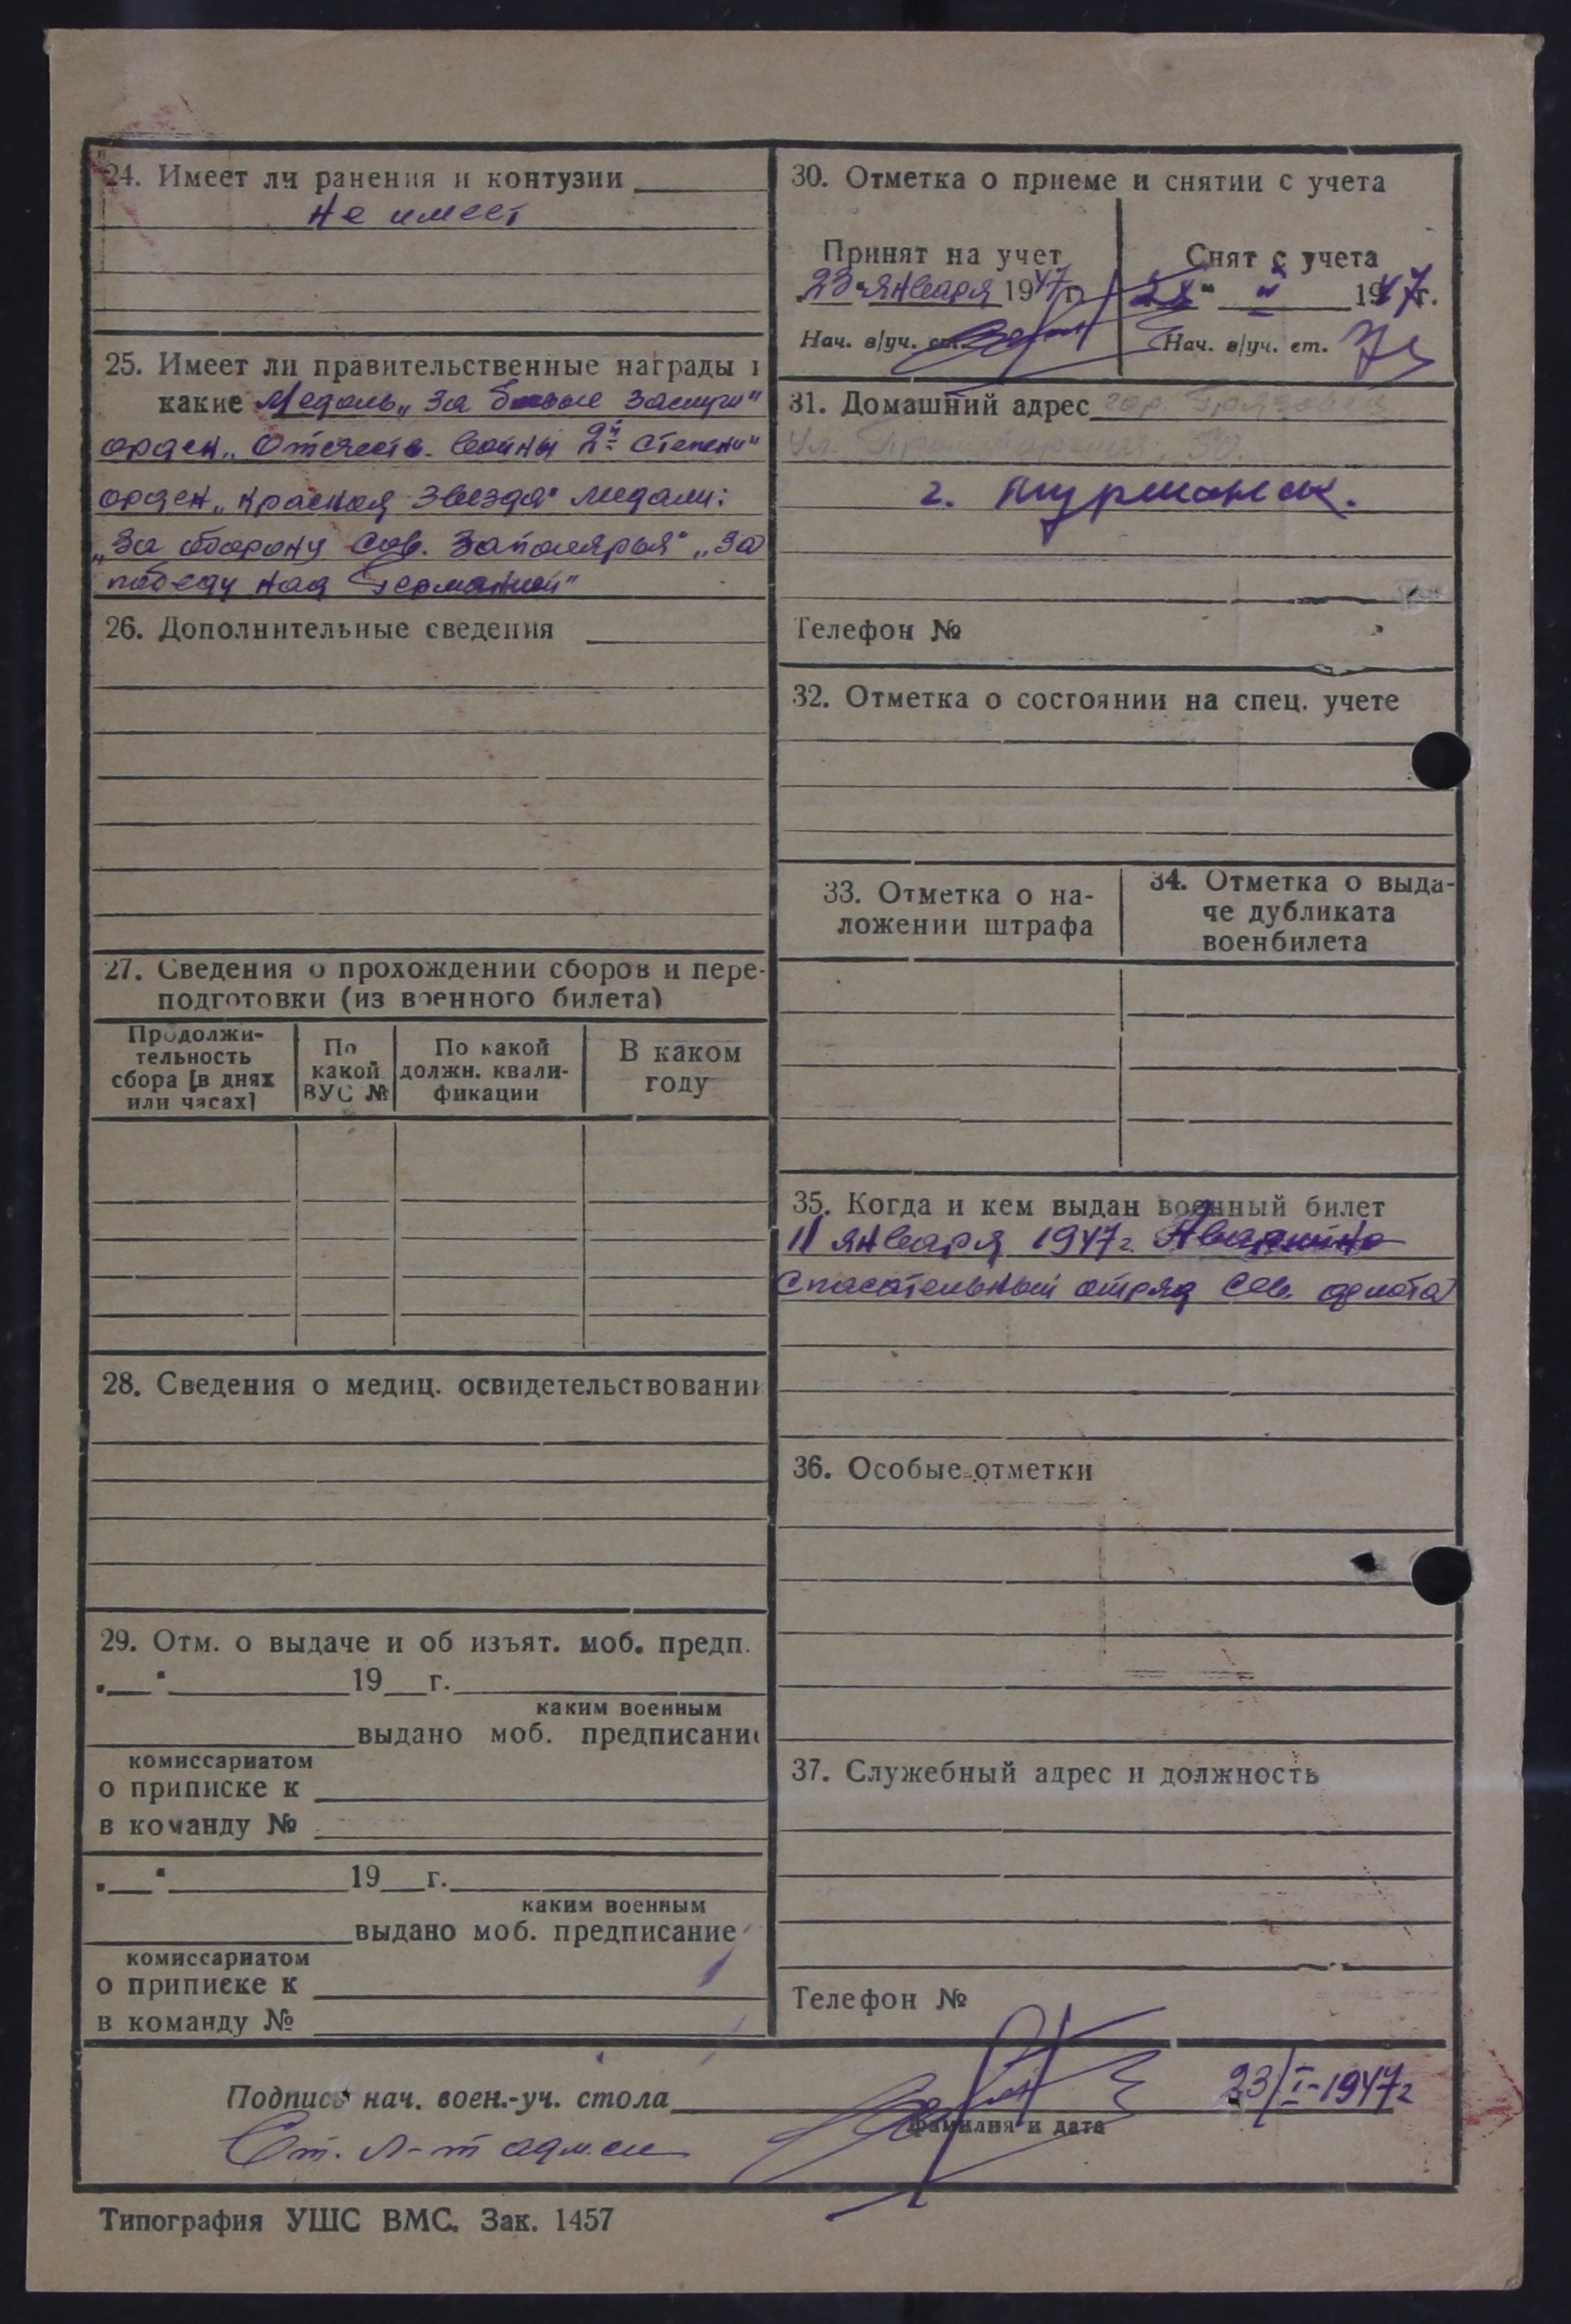 24. Имеет ли ранения и контузии
не имеет
25. Имеет ли правительственные награды и
какие Медаль „За боевые заслуги"
орден „Отечеств. войны 2й степени"
орден „Красная Звезда" медали:
„За оборону Сов. Заполярья" „За
победу над Германией"
26. Дополнительные сведения
27. Сведения о прохождении сборов и пере-
подготовки (из военного билета)
Продолжи-
тельность
сбора [в днях
или часах]
По
какой
ВУС №
По какой
должн. квали-
фикации
В каком
году
28. Сведения о медиц. освидетельствовании
29. Отм. о выдаче и об изъят. моб. предп.
„__" 19__г.
каким военным
выдано моб. предписание
комиссариатом
о приписке к
в команду №
„__" 19__г.
каким военным
выдано моб. предписание
комиссариатом
о приписке к
в команду №
30. Отметка о приеме и снятии с учета
Принят на учет
23 " января 1947 г.
Нач. в/уч. ст.
Снят с учета
1947г.
Нач. в/уч. ст.
31. Домашний адрес гор. Грязовец
ул. 50.
г. Мурманск.
Телефон №
32. Отметка о состоянии на спец. учете
33. Отметка о на-
ложении штрафа
34. Отметка о выда-
че дубликата
военбилета
35. Когда и кем выдан военный билет
11 января 1947 г. Аварийно
спасательный отряд Сев. флота
36. Особые отметки
37. Служебный адрес и должность
Телефон №
Подпись нач. воен.-уч. стола 23/I-1947г
фамилия и дата
Ст. л-т адм. сл
Типография УШС ВМС. Зак. 1457